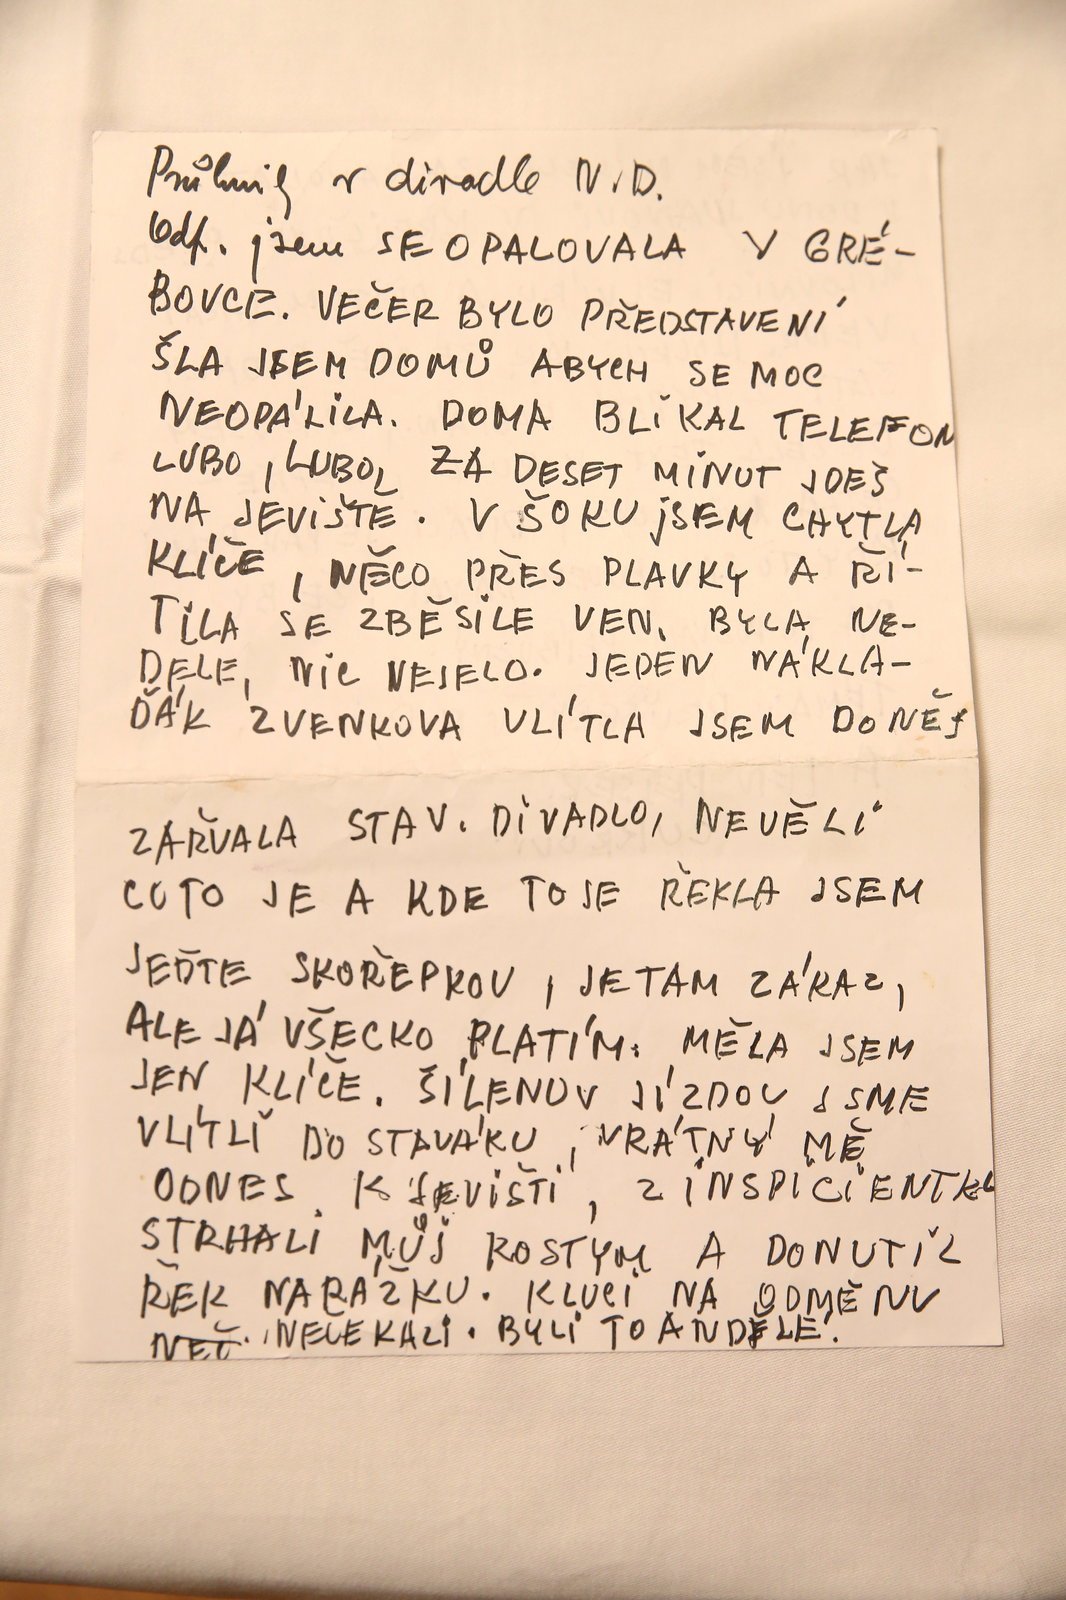 Průšvih v divadle N.D.
Odp. jsem SE OPALOVALA V GRÉ-
BOVCE. VEČER BYLO PŘEDSTAVENÍ
ŠLA JSEM DOMŮ ABYCH SE MOC
NEOPÁLILA. DOMA BLIKAL TELEFON
LUBO, LUBO, ZA DESET MINUT JDEŠ
NA JEVIŠTĚ. V ŠOKU jSEM CHYTLA
KLÍČE, NĚCO PŘES PLAVKY A ŘÍ-
TILA SE ZBĚSILE VEN. BYLA NE-
DELE, NIC NEJELO. JEDEN NÁKLA-
ĎÁK ZVENKOVA VLÍTLA JSEM DO NĚJ
ZAŘVALA STAV. DIVADLO, NEVĚLI
CO TO JE A KDE TO JE ŘEKLA JSEM
JEĎTE SKOŘEPKOU, JE TAM ZÁKAZ,
ALE JÁ VŠECKO PLATÍM. MĚLA JSEM
JEN KLÍČE. ŠÍLENOU JÍZDOU JSME
VLÍTLI DO STAVÁKU, VRÁTNÝ MĚ
ODNES K JEVIŠTI, Z INSPICIENTKY
STRHALI MŮJ KOSTYM A DONUTIL
ŘEK NARÁŽKU. KLUCI NA ODMĚNU
NEČ. NEČEKALI. BYLI TO ANDĚLÉ.